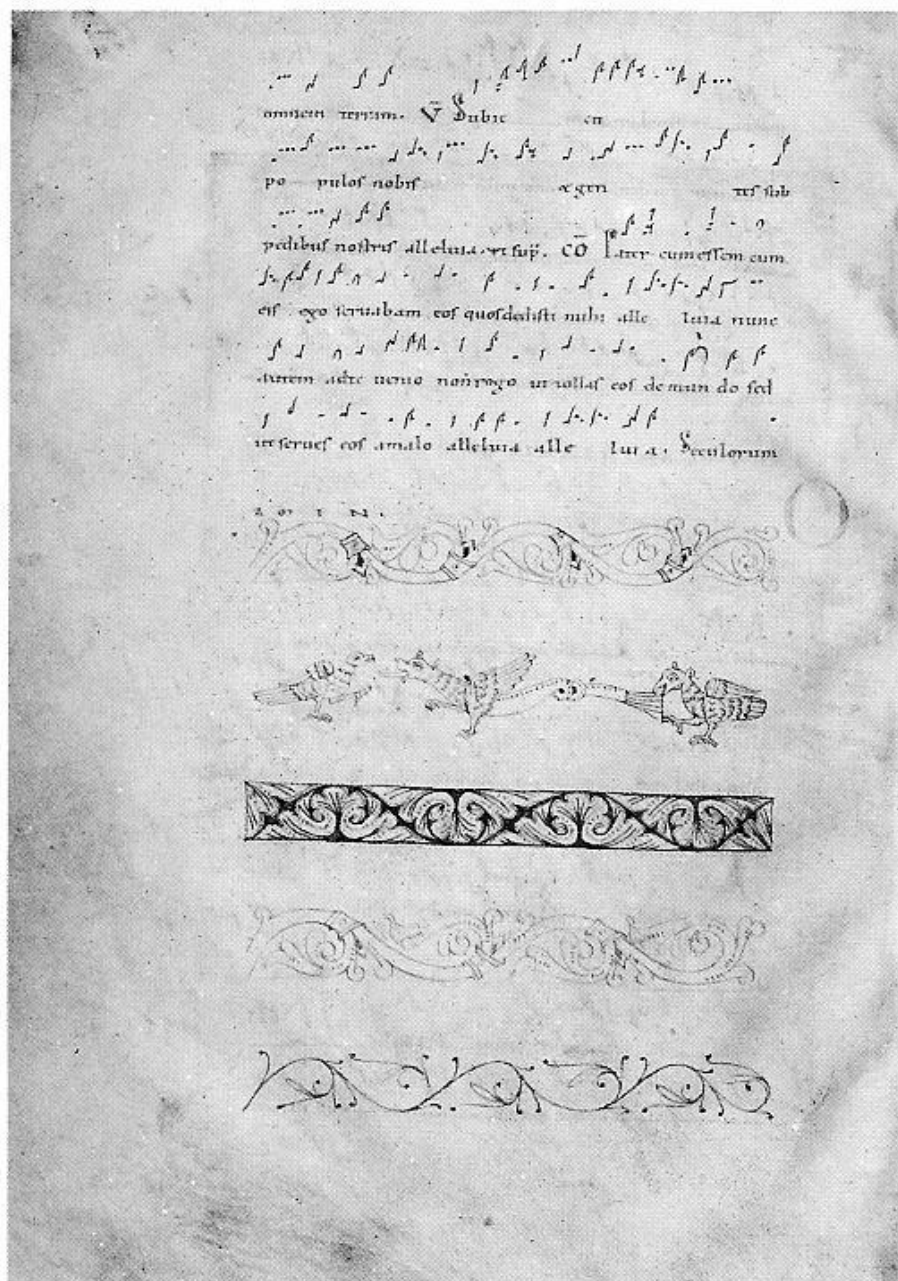 omnem terram. V̄ Subie cit
po pulos nobis & gen tes sub
pedibus nostris alleluia. CŌ Pater cum essem cum
eis ego seruabam eos quos dedisti mihi alle luia nunc
autem adte uenio non rogo ut tollas eos de mun do sed
ut serues eos amalo alleluia alle luia. Seculorum